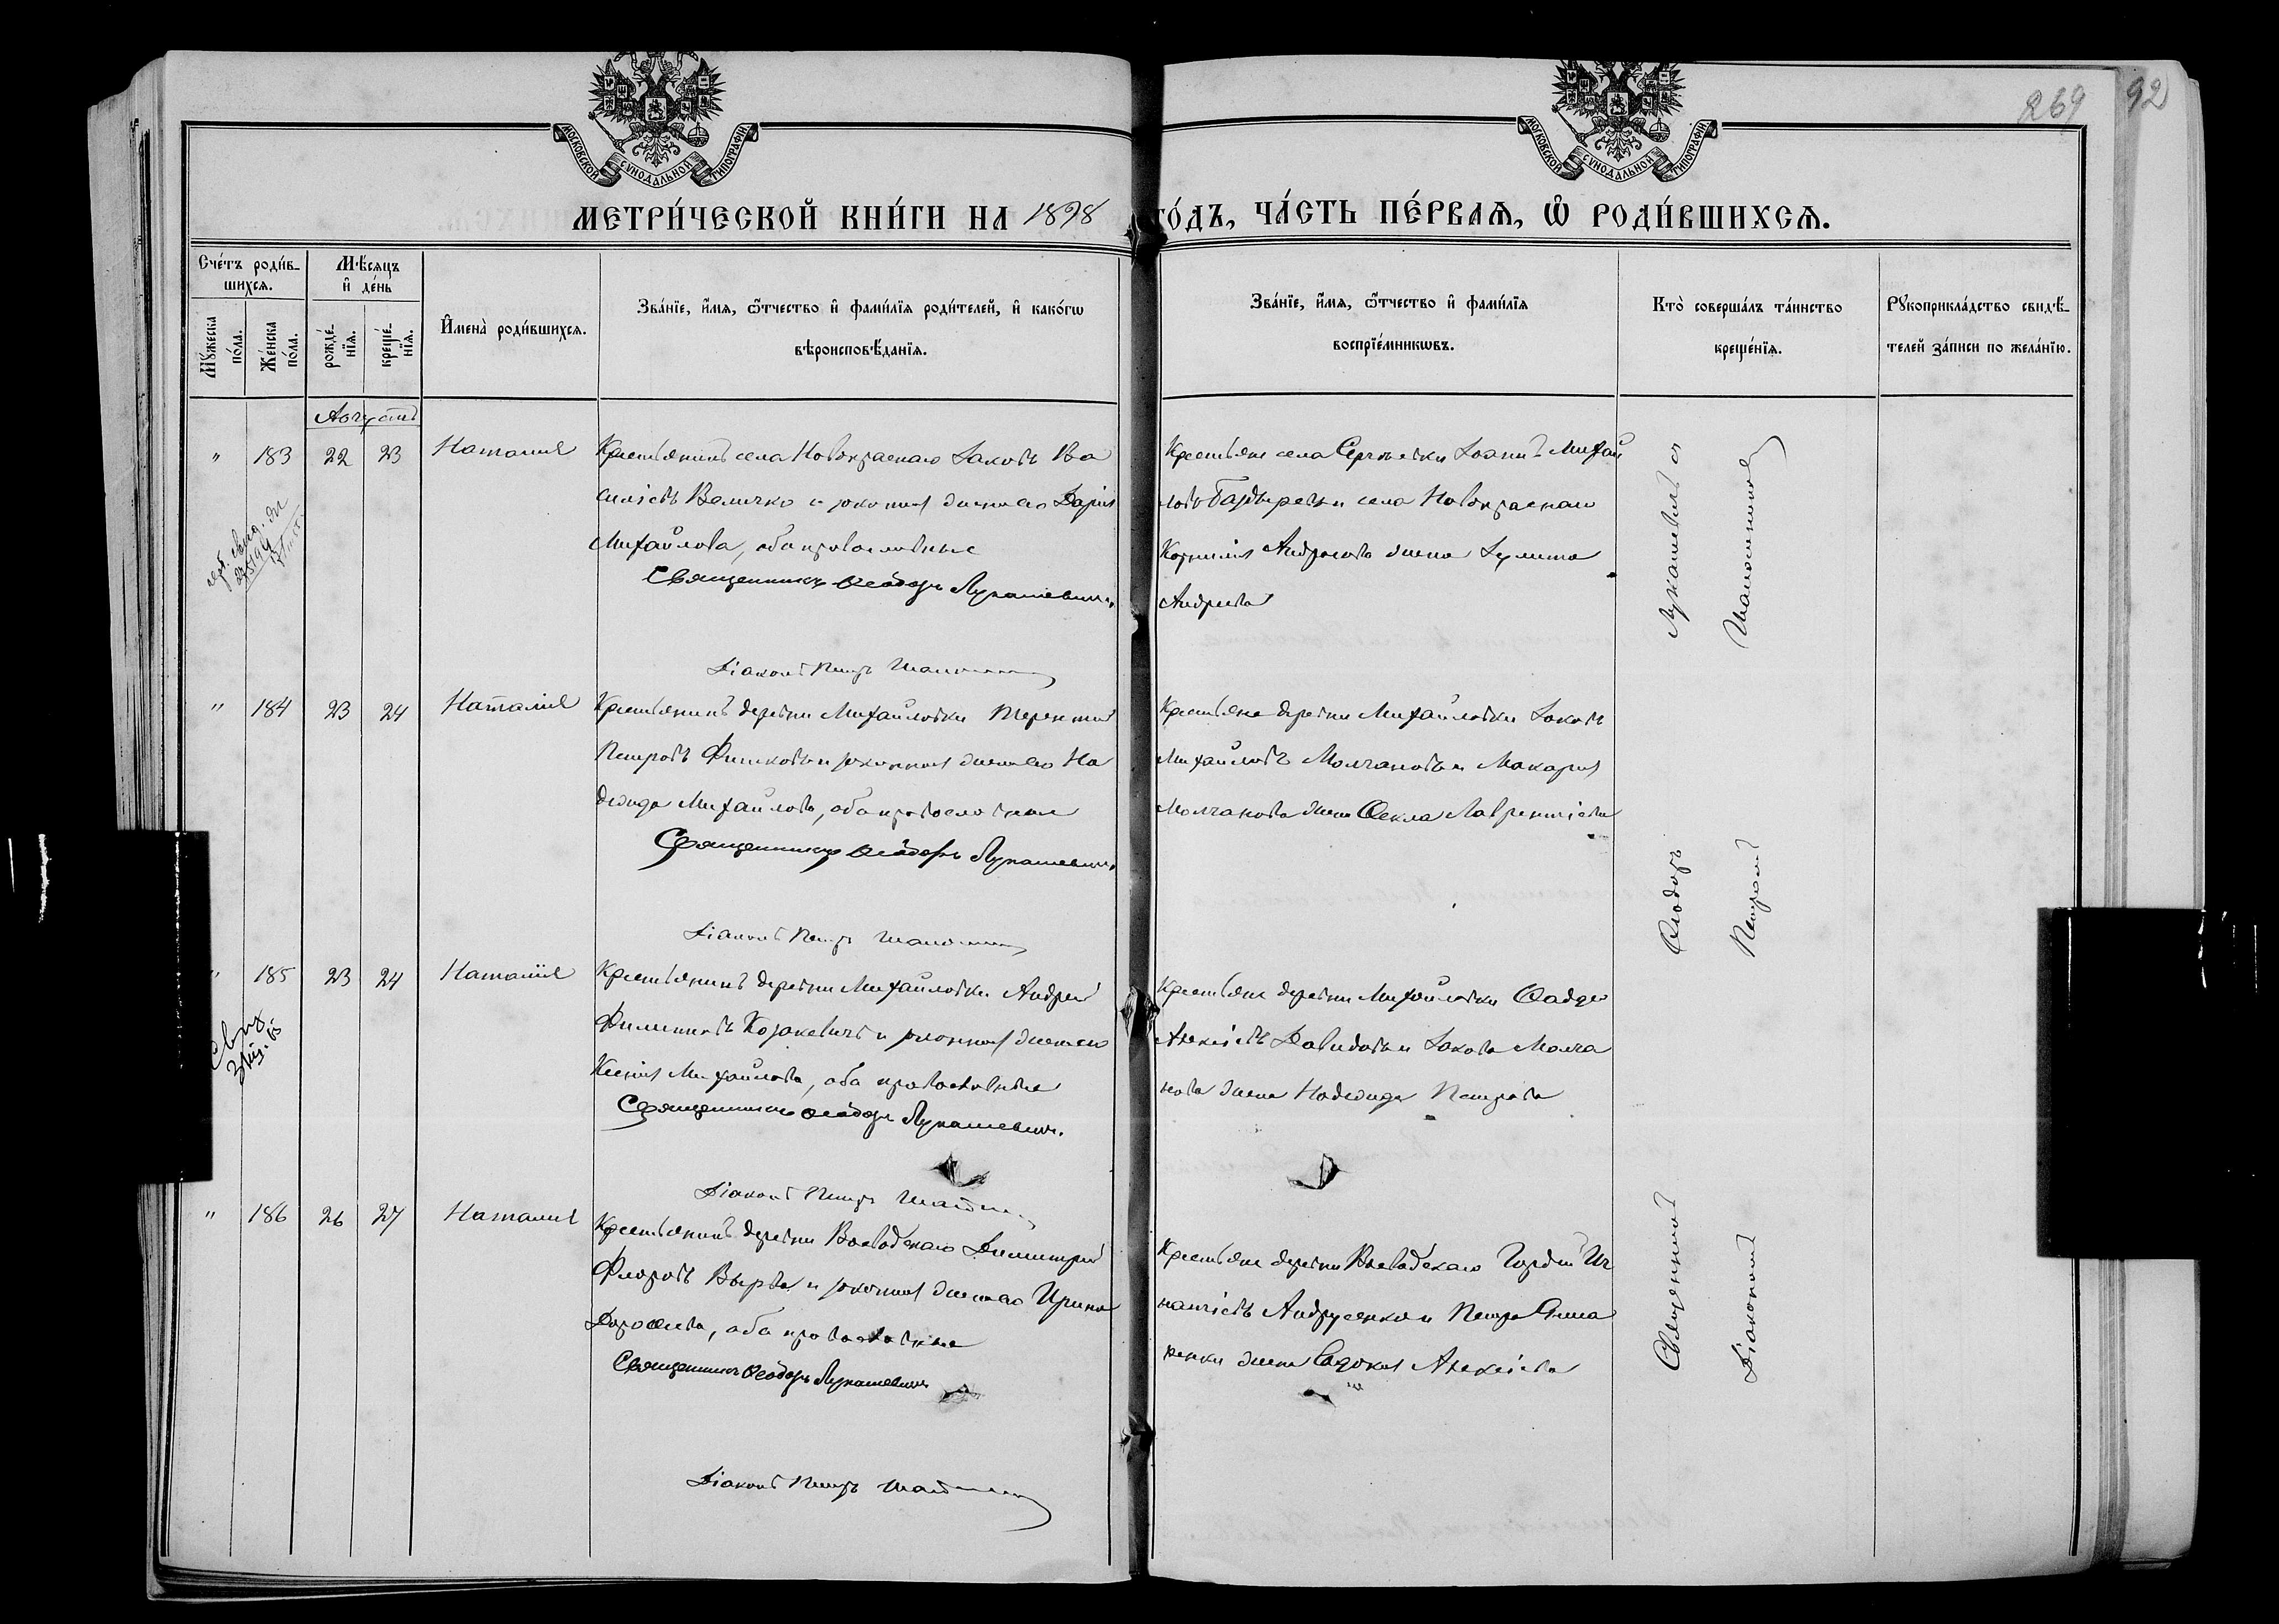 269
92
МОСКОВСКОЙ СУНОДАЛЬНОЙ ТИПОГРАФІИ
МОСКОВСКОЙ СУНОДАЛЬНОЙ ТИПОГРАФІИ
МЕТРИ́ЧЕСКОЙ КНИ́ГИ НА 1898 ГО́ДЪ, ЧА́СТЬ ПЕ́РВАѦ, Ѡ РОДИ́ВШИХСѦ.
Сче́тъ роди́в-
шихсѧ.
Мѣ́сѧцъ
и де́нь
Мꙋ́жеска по́ла.
Же́нска по́ла.
рожде́нїѧ.
креще́нїѧ.
Имена̀ роди́вшихсѧ.
Зва́нїе, и́мѧ, ѻ́тчество и фами́лїѧ роди́телей, и како́гѡ
вѣроисповѣ́данїѧ.
Зва́нїе, и́мѧ, ѻ́тчество и фами́лїѧ
воспрїе́мникѡвъ.
Кто̀ соверша́лъ та́инство
креще́нїѧ.
Рꙋкоприкла́дство свидѣ́-
телей за́писи по жела́нїю.
Августъ
" 183 22 23 Наталия Крестьянинъ села Новокраснаго Іаковъ Ва
силіевъ Величко и законная жена его Дарія
Михайлова, оба православные
Священникъ Ѳеодоръ Лукашевичъ.
Діаконъ Петръ
Крестьяне села Сергѣевки Іоаннъ Михай
ловъ и села Новокраснаго
Корнилія жена
Андреева
" 184 23 24 Наталія Крестьянинъ деревни Михайловки Терентій
Петровъ и законная жена его На
дежда Михайлова, оба православные
Священникъ Ѳеодоръ Лукашевичъ.
Діаконъ Петръ
Крестьяне деревни Михайловки Іаковъ
Михайловъ Молчановъ и Макарія
Молчанова жена Ѳекла Лаврентіева
" 185 23 24 Наталія Крестьянинъ деревни Михайловки Андрей
Филипповъ Козакевичъ и законная жена его
Ксенія Михайлова, оба православные
Священникъ Ѳеодоръ Лукашевичъ.
Діаконъ Петръ
Крестьяне деревни Михайловки Ѳадде
Алексіевъ Давидовъ и Іакова Молча
нова жена Надежда Петрова
" 186 26 27 Наталия Крестьянинъ деревни Воеводскаго Димитрій
Флоровъ Вырва и законная жена его Ирина
Дороѳеева, оба православные
Священникъ Ѳеодоръ Лукашевичъ
Діаконъ Петръ
Крестьяне деревни Воеводскаго Гордій Иг
натіевъ Андрусенко и Петра
жена Евдокія Алексіева
Священникъ Ѳеодоръ Лукашевичъ и
Діаконъ Петръ